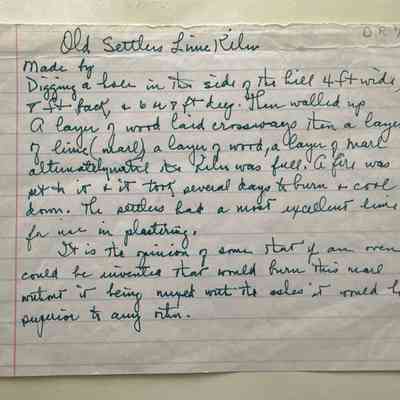 D R
Old Settlers Lime Kiln
Made by
Digging a hole in the side of the hill 4 ft wide,
8 ft back, & 6 or 8 ft deep. Then walled up
A layer of wood laid crossways then a layer
of lime (marl) a layer of wood, a layer of marl
alternately until the kiln was full. A fire was
set to it & it took several days to burn & cool
down. The settlers had a most excellent lime
for use in plastering.
It is the opinion of some that if an oven
could be invented that would burn this marl
without it being mixed with the ashes it would be
superior to any other.